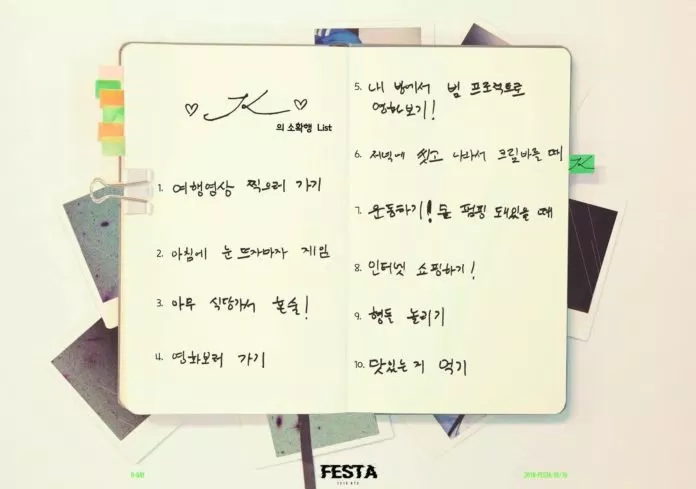 ♡ JK ♡
의 소확행 List
1. 여행영상 찍으러 가기
2. 아침에 눈 뜨자마자 게임
3. 아무 식당가서 혼술!
4. 영화보러 가기
5. 내 방에서 빔 프로젝트로
영화보기!
6. 저녁에 씻고 나와서 크림바를 때
7. 운동하기! 몸 펌핑 돼있을 때
8. 인터넷 쇼핑하기!
9. 형들 놀리기
10. 맛있는거 먹기
JK
FESTA
2018 BTS